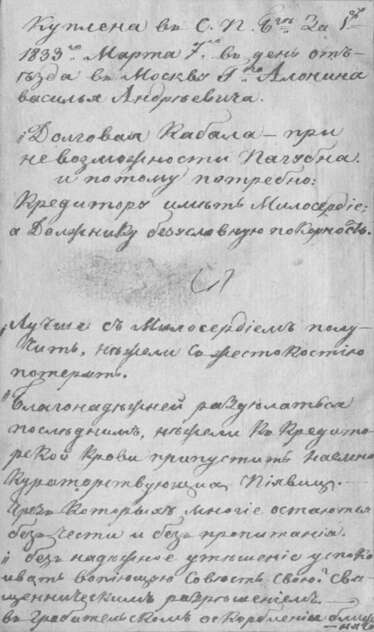 Куплена въ С. П. Бгѣ. За 1р
1833го Марта 7го въ день отъ-
ѣзда въ Москву Гна Алонина
василья Андрѣевича.
i Долговая Кабала — при
невозможности Пагубна.
и потому потребно:
Кредитору имѣть Милосердіе;
а Должнику безусловную покорность.
Лучше съ Милосердіемъ полу-
чить, нежели со жестокостію
потерять.
Благонадѣжней раздѣлаться
послѣднимъ, нѣжели къ Кредито-
рской Крови припустить наемно
Кураторствующихъ Піявицъ.
Чрезъ Которыхъ многіе остаются
безъ чести и безъ пропитанія.
i безъ надѣжное утѣшеніе успоко-
ивать вопіющую Совѣсть своей Свя-
щенническимъ разрѣшеніемъ —
въ Грабительскомъ оскорбленіи